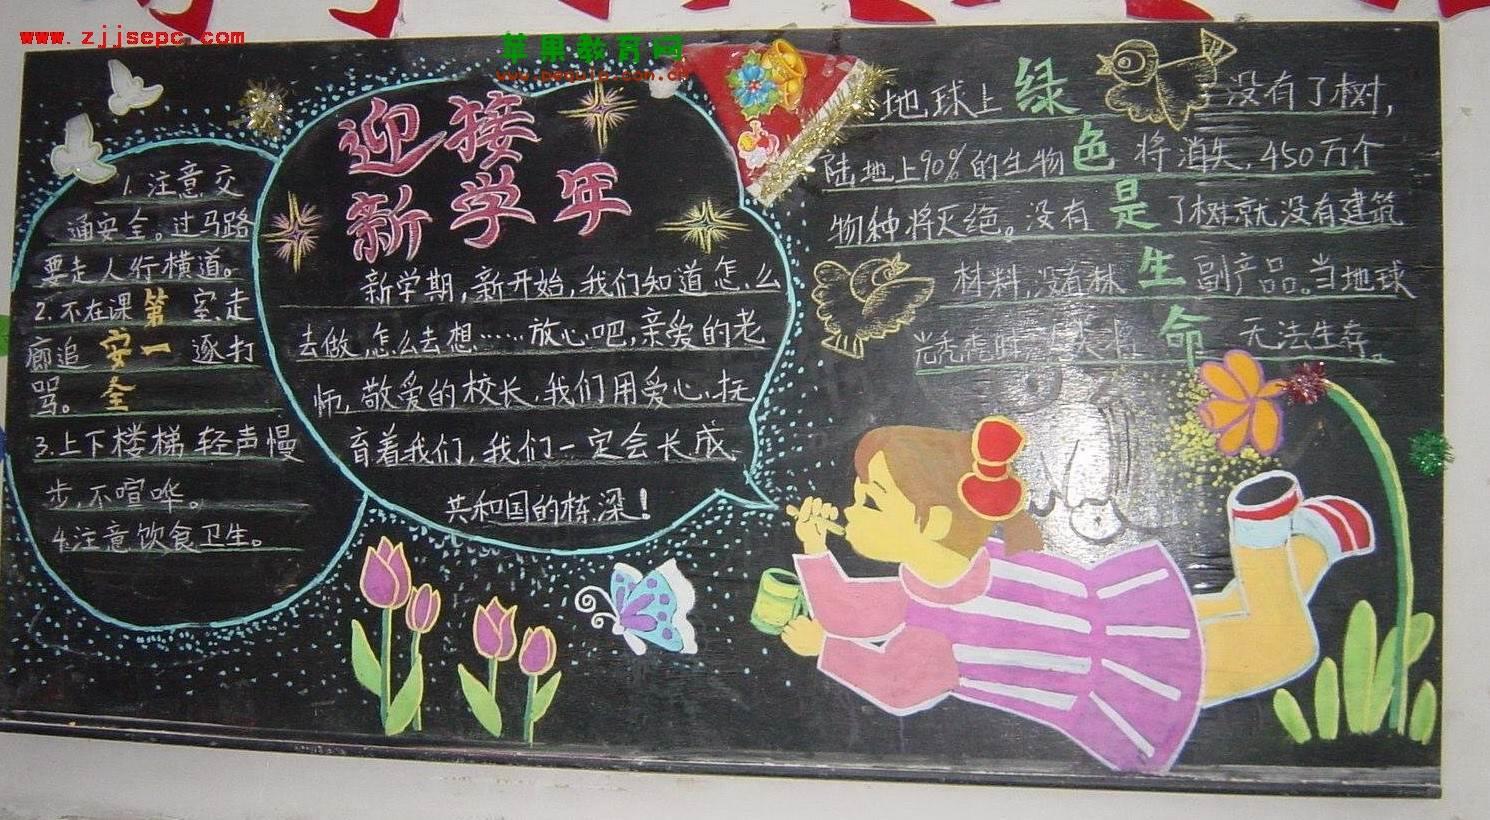 www.zjjsepc.com
苹果教育网
1.注意交
通安全。过马路
要走人行横道。
2.不在课室,走
廊追逐打
骂。
3.上下楼梯轻声慢
步,不喧哗。
4.注意饮食卫生。
安全第一
迎接
新学年
新学期,新开始,我们知道怎么
去做,怎么去想……放心吧,亲爱的老
师,敬爱的校长,我们用爱心抚
育着我们,我们一定会长成
共和国的栋深!
绿色是生命
地球上没有了树,
陆地上90%的生物将消失,450万个
物种将灭绝。没有了树就没有建筑
材料,没有林副产品。当地球
光秃 时 无法生存。